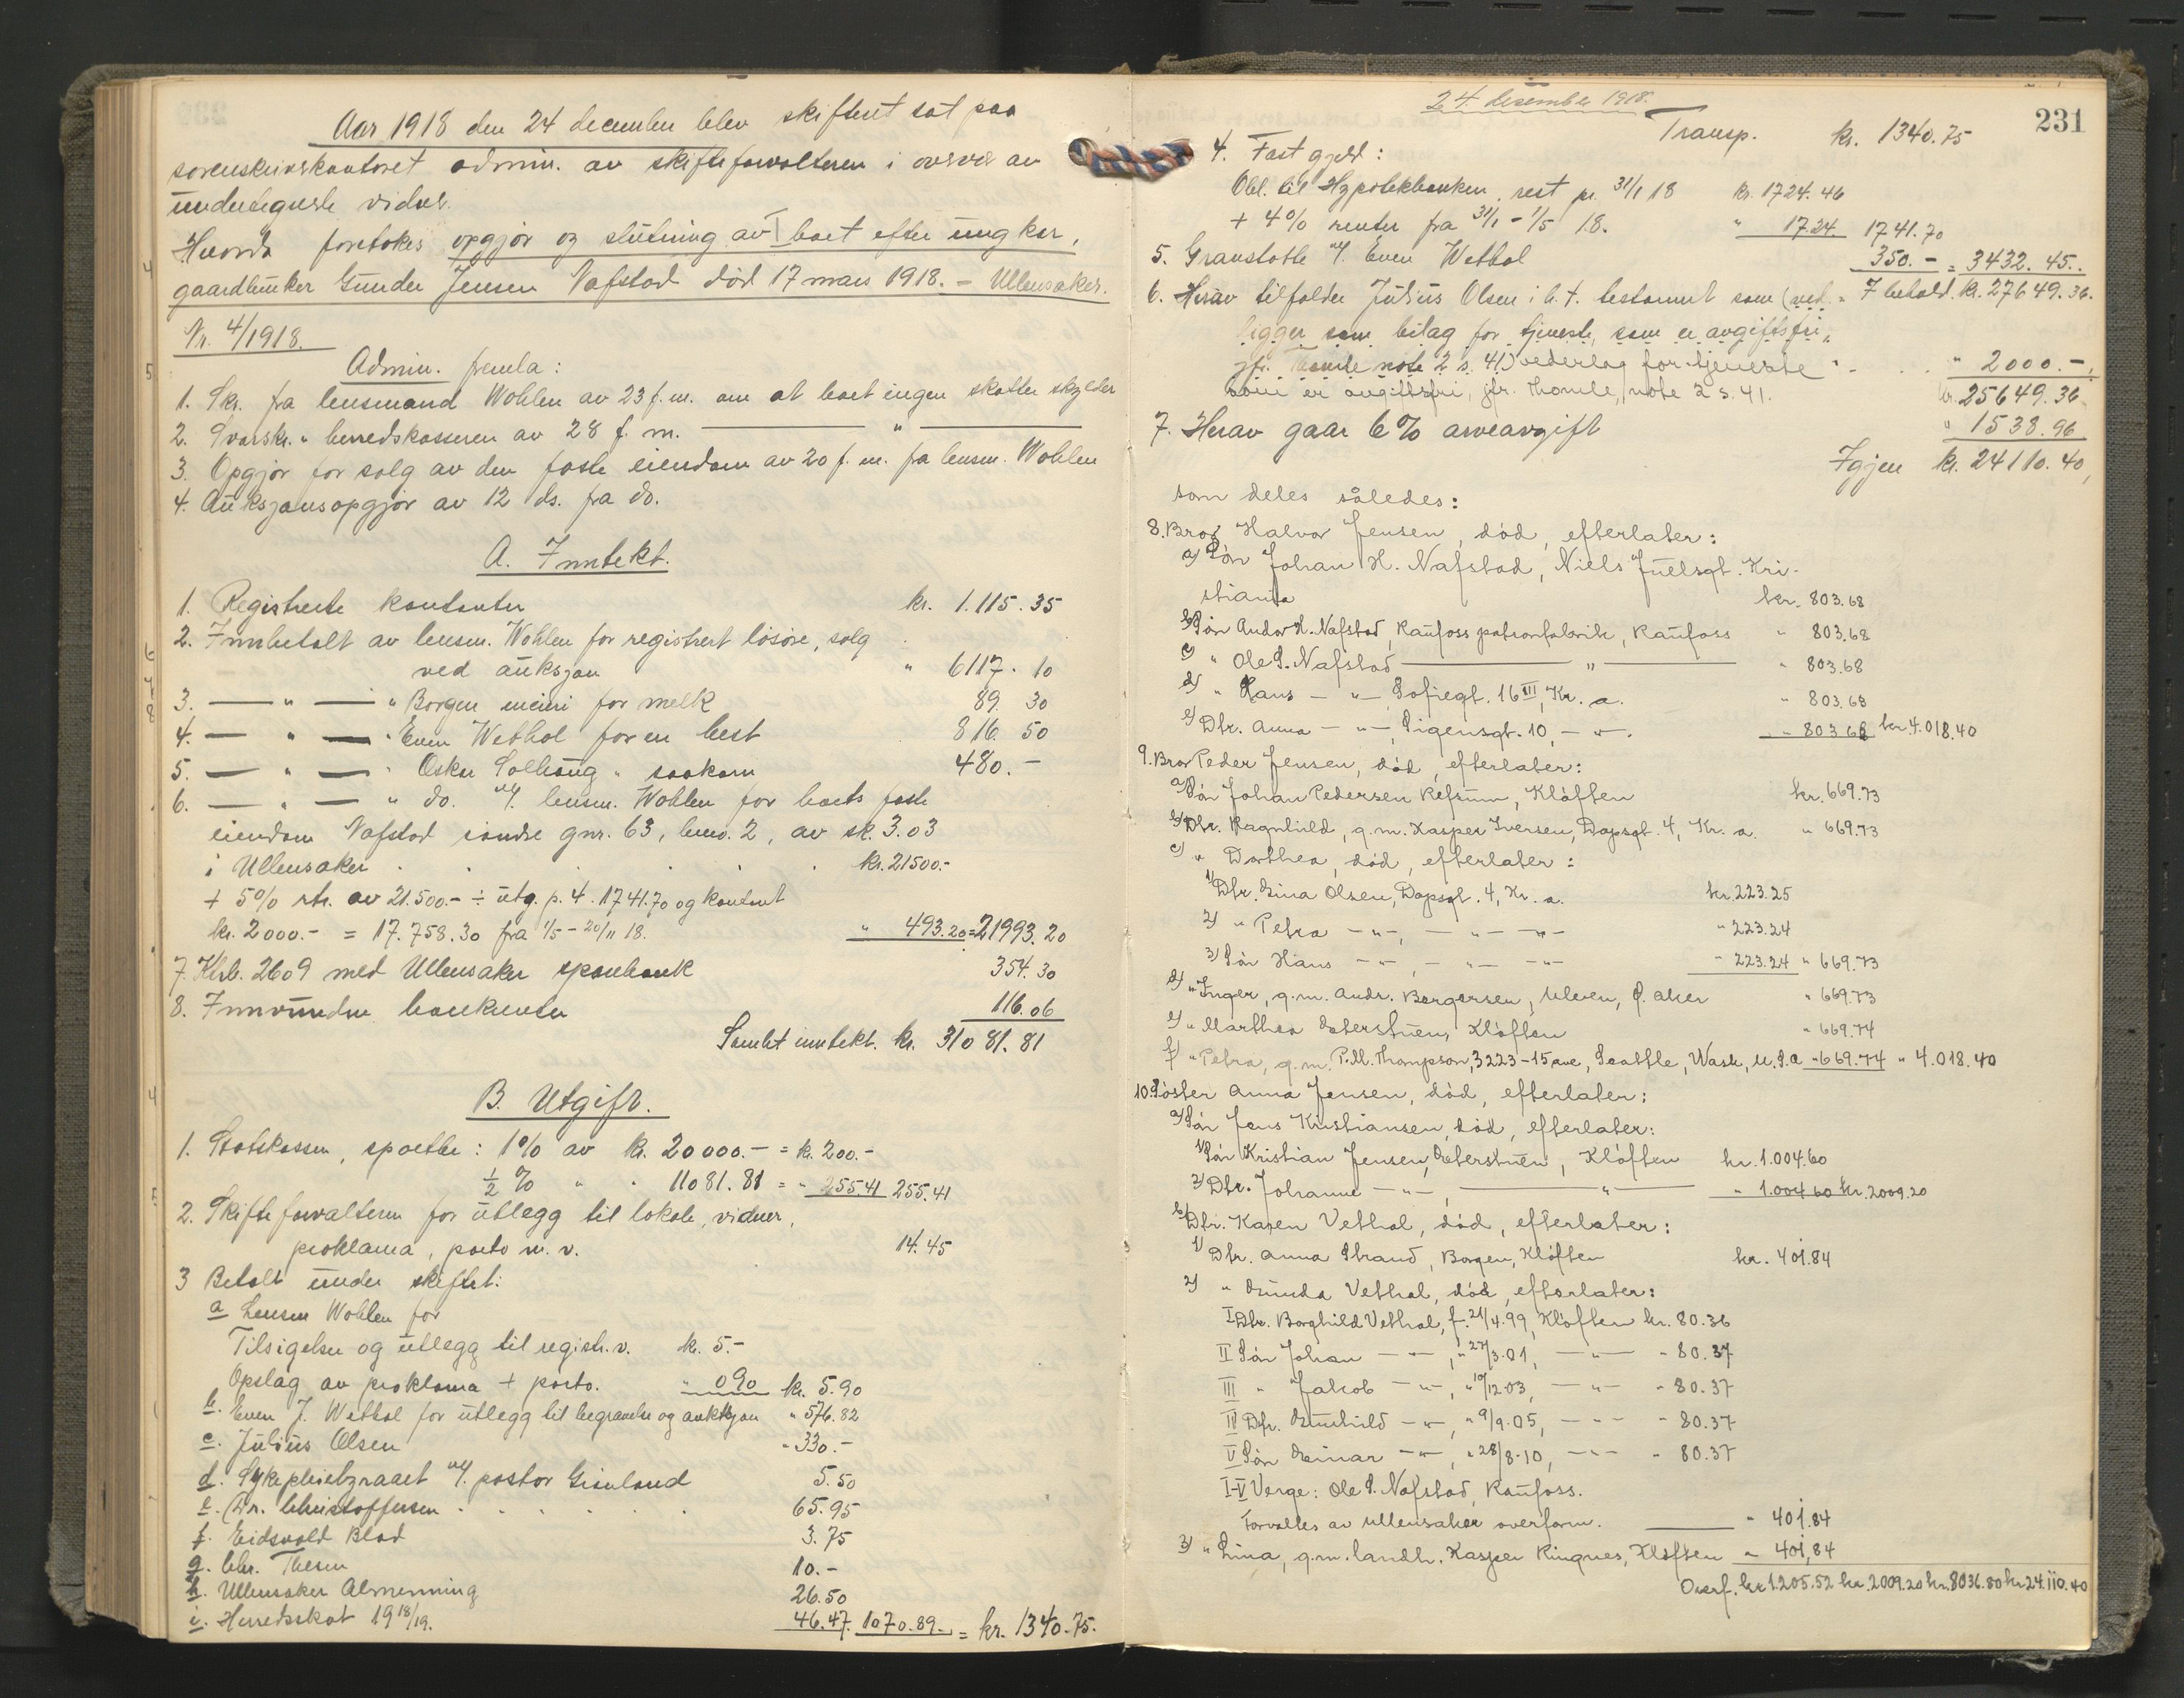 Aar 1918 den 24 december blev skifteret sat paa
sorenskriverkontoret admin. av skifteforvalteren i overvær av
undertegnede vidner.
Hvorda foretokes opgjør og slutning av boet efter ungkar,
gaardbruker Gunder Jensen Nafstad død 17 mars 1918. - Ullensaker.
Nr. 4/1918.
Admin. fremla:
1. Skr. fra lensmand Wohlen av 23 f. m. om at boet ingen skatter skylder
2. Svarskr. " herredskasseren av 28 f. m. — " —
3. Opgjør for salg av den faste eiendom av 20 f. m. fra lensm. Wohlen
4. Auksjonsopgjør av 12 ds. fra do.
A. Inntekt.
1. Registrerte kontanter kr. 1.115.35
2. Innbetalt av lensm. Wohlen for registrert løsøre, solg
ved auksjon " 6117.10
3. — " — " Borgen meieri for melk 89.30
4. — " — " Even Wethal for en hest 816.50
5. — " — " Oskar Solhaug " saakorn 480.-
6. — " — " do. v/ lensm. Wohlen for boets faste
eiendom Nafstad søndre gnr. 63, brno. 2, av sk. 3.03
i Ullensaker kr. 21500.-
+ 5% rtr. av 21.500.- ÷ utg. p. 4. 1741.70 og kontant
kr. 2000.- = 17.758.30 fra 1/5 - 20/11 18. " 493.20 = 21993.20
7. Ktrb. 2609 med Ullensaker sparebank 354.30
8. Innvundne bankrenter 116.06
Samlet inntekt. kr. 31081.81
B. Utgift.
1. Statskassen, sportler: 1% av kr. 20000.- = kr. 200.-
1/2 % " " 11081.81 = " 255.41 255.41
2. Skifteforvalteren for utlegg til lokale, vidner,
proklama, porto m. v. 14.45
3 Betalt under skiftet:
a Lensm Wohlen for
Tilsigelser og utlegg til registr.v. kr. 5.-
Opslag av proklama + porto. " 0.90 kr. 5.90
b. Even J. Wethal for utlegg til begravelse og auksjon " 576.82
c. Julius Olsen " 330.-
d. Sykepleiebyraaet v/ pastor 5.50
e. Dr. Christoffersen 65.95
f. Eidsvold Blad 3.75
g. Chr. Thesen 10.-
h. Ullensaker Almenning 26.50
i. Herredsskat 1918/19. 46.47. 1070.89. = kr. 1340.75.
24 desember 1918.
231
Transp. kr. 1340.75
4. Fast gjeld:
Obl. til Hypotekbanken, rest pr. 31/1 18 kr. 1724.46
+ 4% renter fra 31/1 - 1/5 18. " 17.24. 1741.70
5. Gravstøtte v/ Even Wethal 350.- = 3432.45.
6. Herav tilfalder Julius Olsen i h. t. testament som (ved- = I behold. kr. 27649.36.
ligger som bilag for tjeneste, som er avgiftsfri,
jfr. Thomle note 2 s. 41) vederlag for tjeneste " 2000.-
som er avgiftsfri, jfr. Thomle, note 2 s. 41. kr. 25649.36
7. Herav gaar 6% arveavgift " 1538.96
Igjen kr. 24110.40,
som deles således:
8. Bror Halvor Jensen, død, efterlater:
a) Søn Johan H. Nafstad, Niels Juelsgt. Kri-
stiania kr. 803.68
b) Søn Andor H. Nafstad, Raufoss patronfabrik, Raufoss " 803.68
c) " Ole S. Nafstad — " — " 803.68
d) " Hans — " — Sofiegt. 16 III, Kr. a. " 803.68
e) Dtr. Anna — " —, Signesgt. 10, — " —. " 803.68 kr. 4.018.40
9. Bror Peder Jensen, død, efterlater:
a) Søn Johan Pedersen Refsum, Kløften kr. 669.73
b) Dtr. Ragnhild, g.m. Kasper Iversen, Dopsgt. 4, Kr. a. " 669.73
c) " Dorthea, død, efterlater:
1) Dtr. Gina Olsen, Dopsgt. 4, Kr. a. kr. 223.25
2) " Petra — " —, — " — " — " 223.24
3) Søn Hans — " —, — " — " — " 223.24 " 669.73
d) " Inger, g.m. Andr. Borgersen, Ulven, Ø. Aker " 669.73
e) " Marthea Æterstuen, Kløften " 669.74
f) " Petra, g.m. P.M. Thompson, 3223 - 15 ave, Seattle, Wash, U.S.A " 669.74 " 4.018.40
10. Søster Anna Jensen, død, efterlater:
a) Søn Jens Kristiansen, død, efterlater:
1) Søn Kristian Jensen, Æterstuen, Kløften kr. 1.004.60
2) Dtr. Johanne — " —, — " — " 1.004.60 kr. 2009.20
b) Dtr. Karen Vethal, død, efterlater:
1) Dtr. Anna Strand, Borgen, Kløften kr. 401.84
2) " Gunda Vethal, død, efterlater:
I Dtr. Borghild Vethal, f. 21/4.99, Kløften kr. 80.36
II Søn Johan — " —, " 27/3.01, — " — " 80.37
III " Jakob — " —, " 10/12.03, — " — " 80.37
IV Dtr. Gunhild — " —, " 9/9.05, — " — " 80.37
V Søn Einar — " —, " 28/8.10, — " — " 80.37
I-V Verge: Ole S. Nafstad, Raufoss.
Forvaltes av Ullensaker overform. — " 401.84
3) " Lina, g.m. landh. Kasper Ringnes, Kløften " 401,84
Overf. kr 1.205.52 kr. 2009.20 kr. 8036.80 kr. 24.110.40